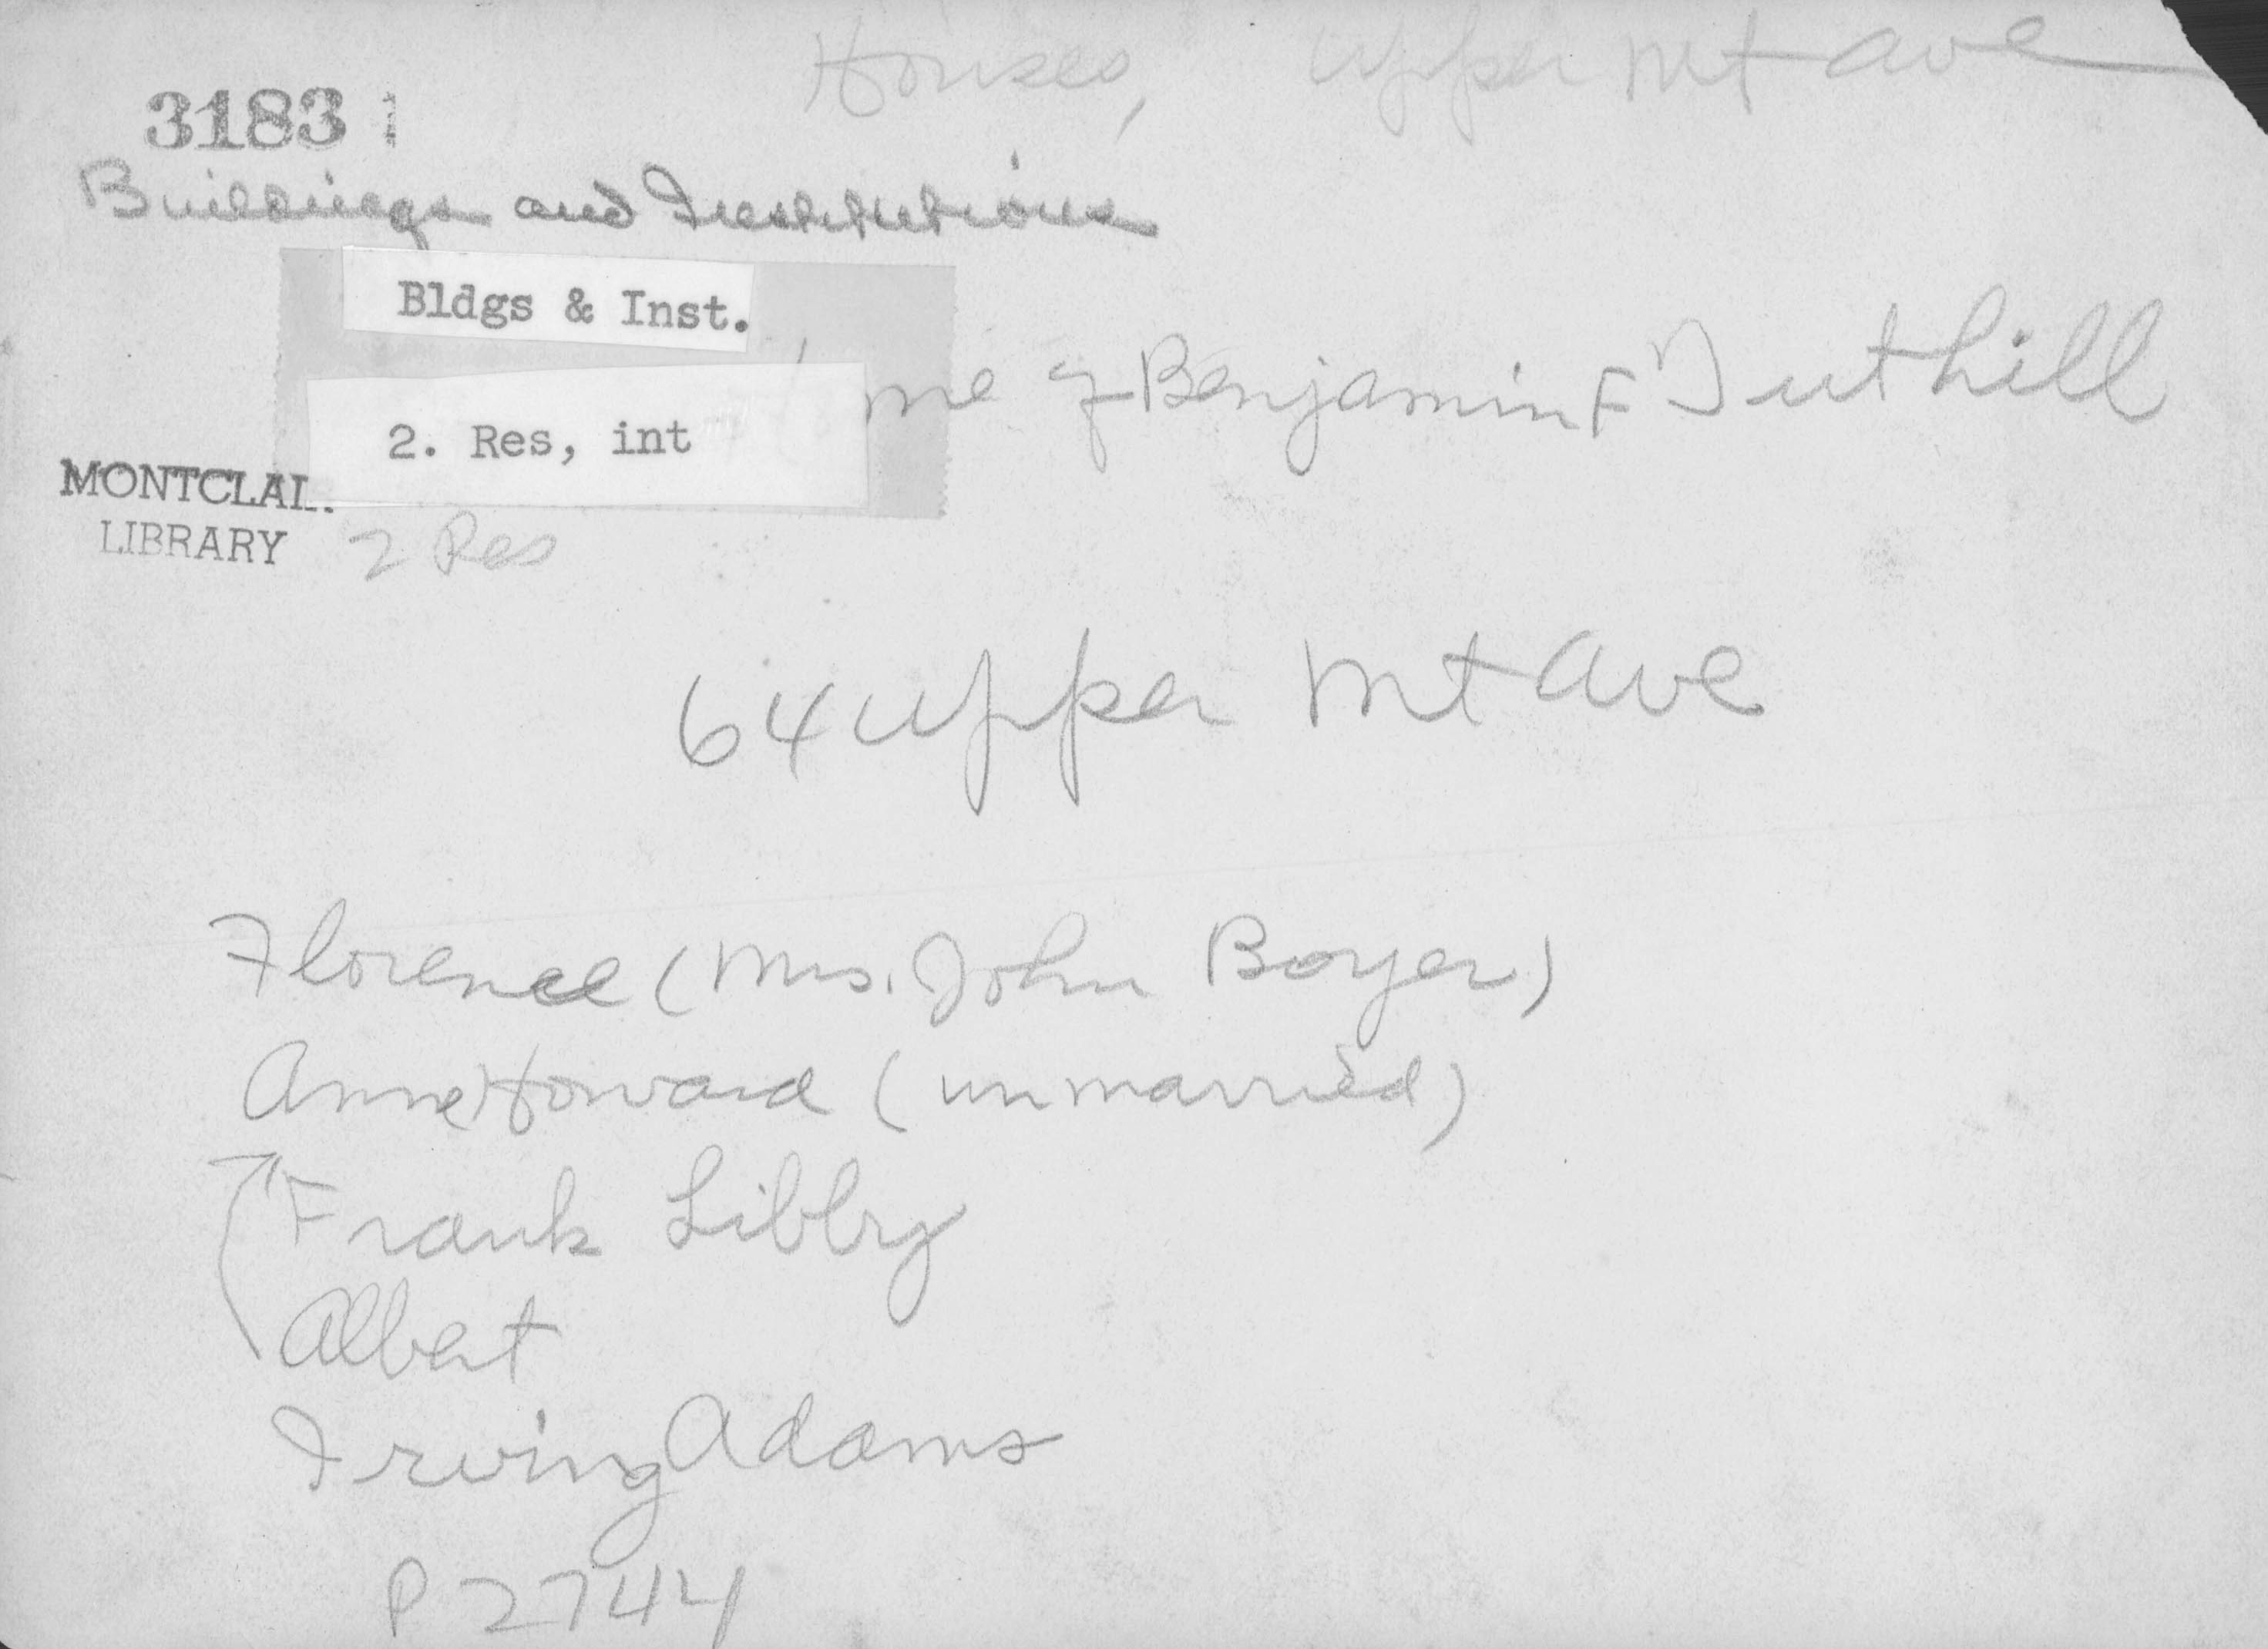 Houses, Upper Mt Ave
3183
Buildings and Institutions
Bldgs & Inst.
me of Benjamin F Tuthill
2. Res, int
MONTCLAI
LIBRARY
2 Res
64 Upper Mt Ave
Florence (Mrs. John Boyer)
Anne Howard (unmarried)
Frank Libby
Albert
Irving Adams
P2744